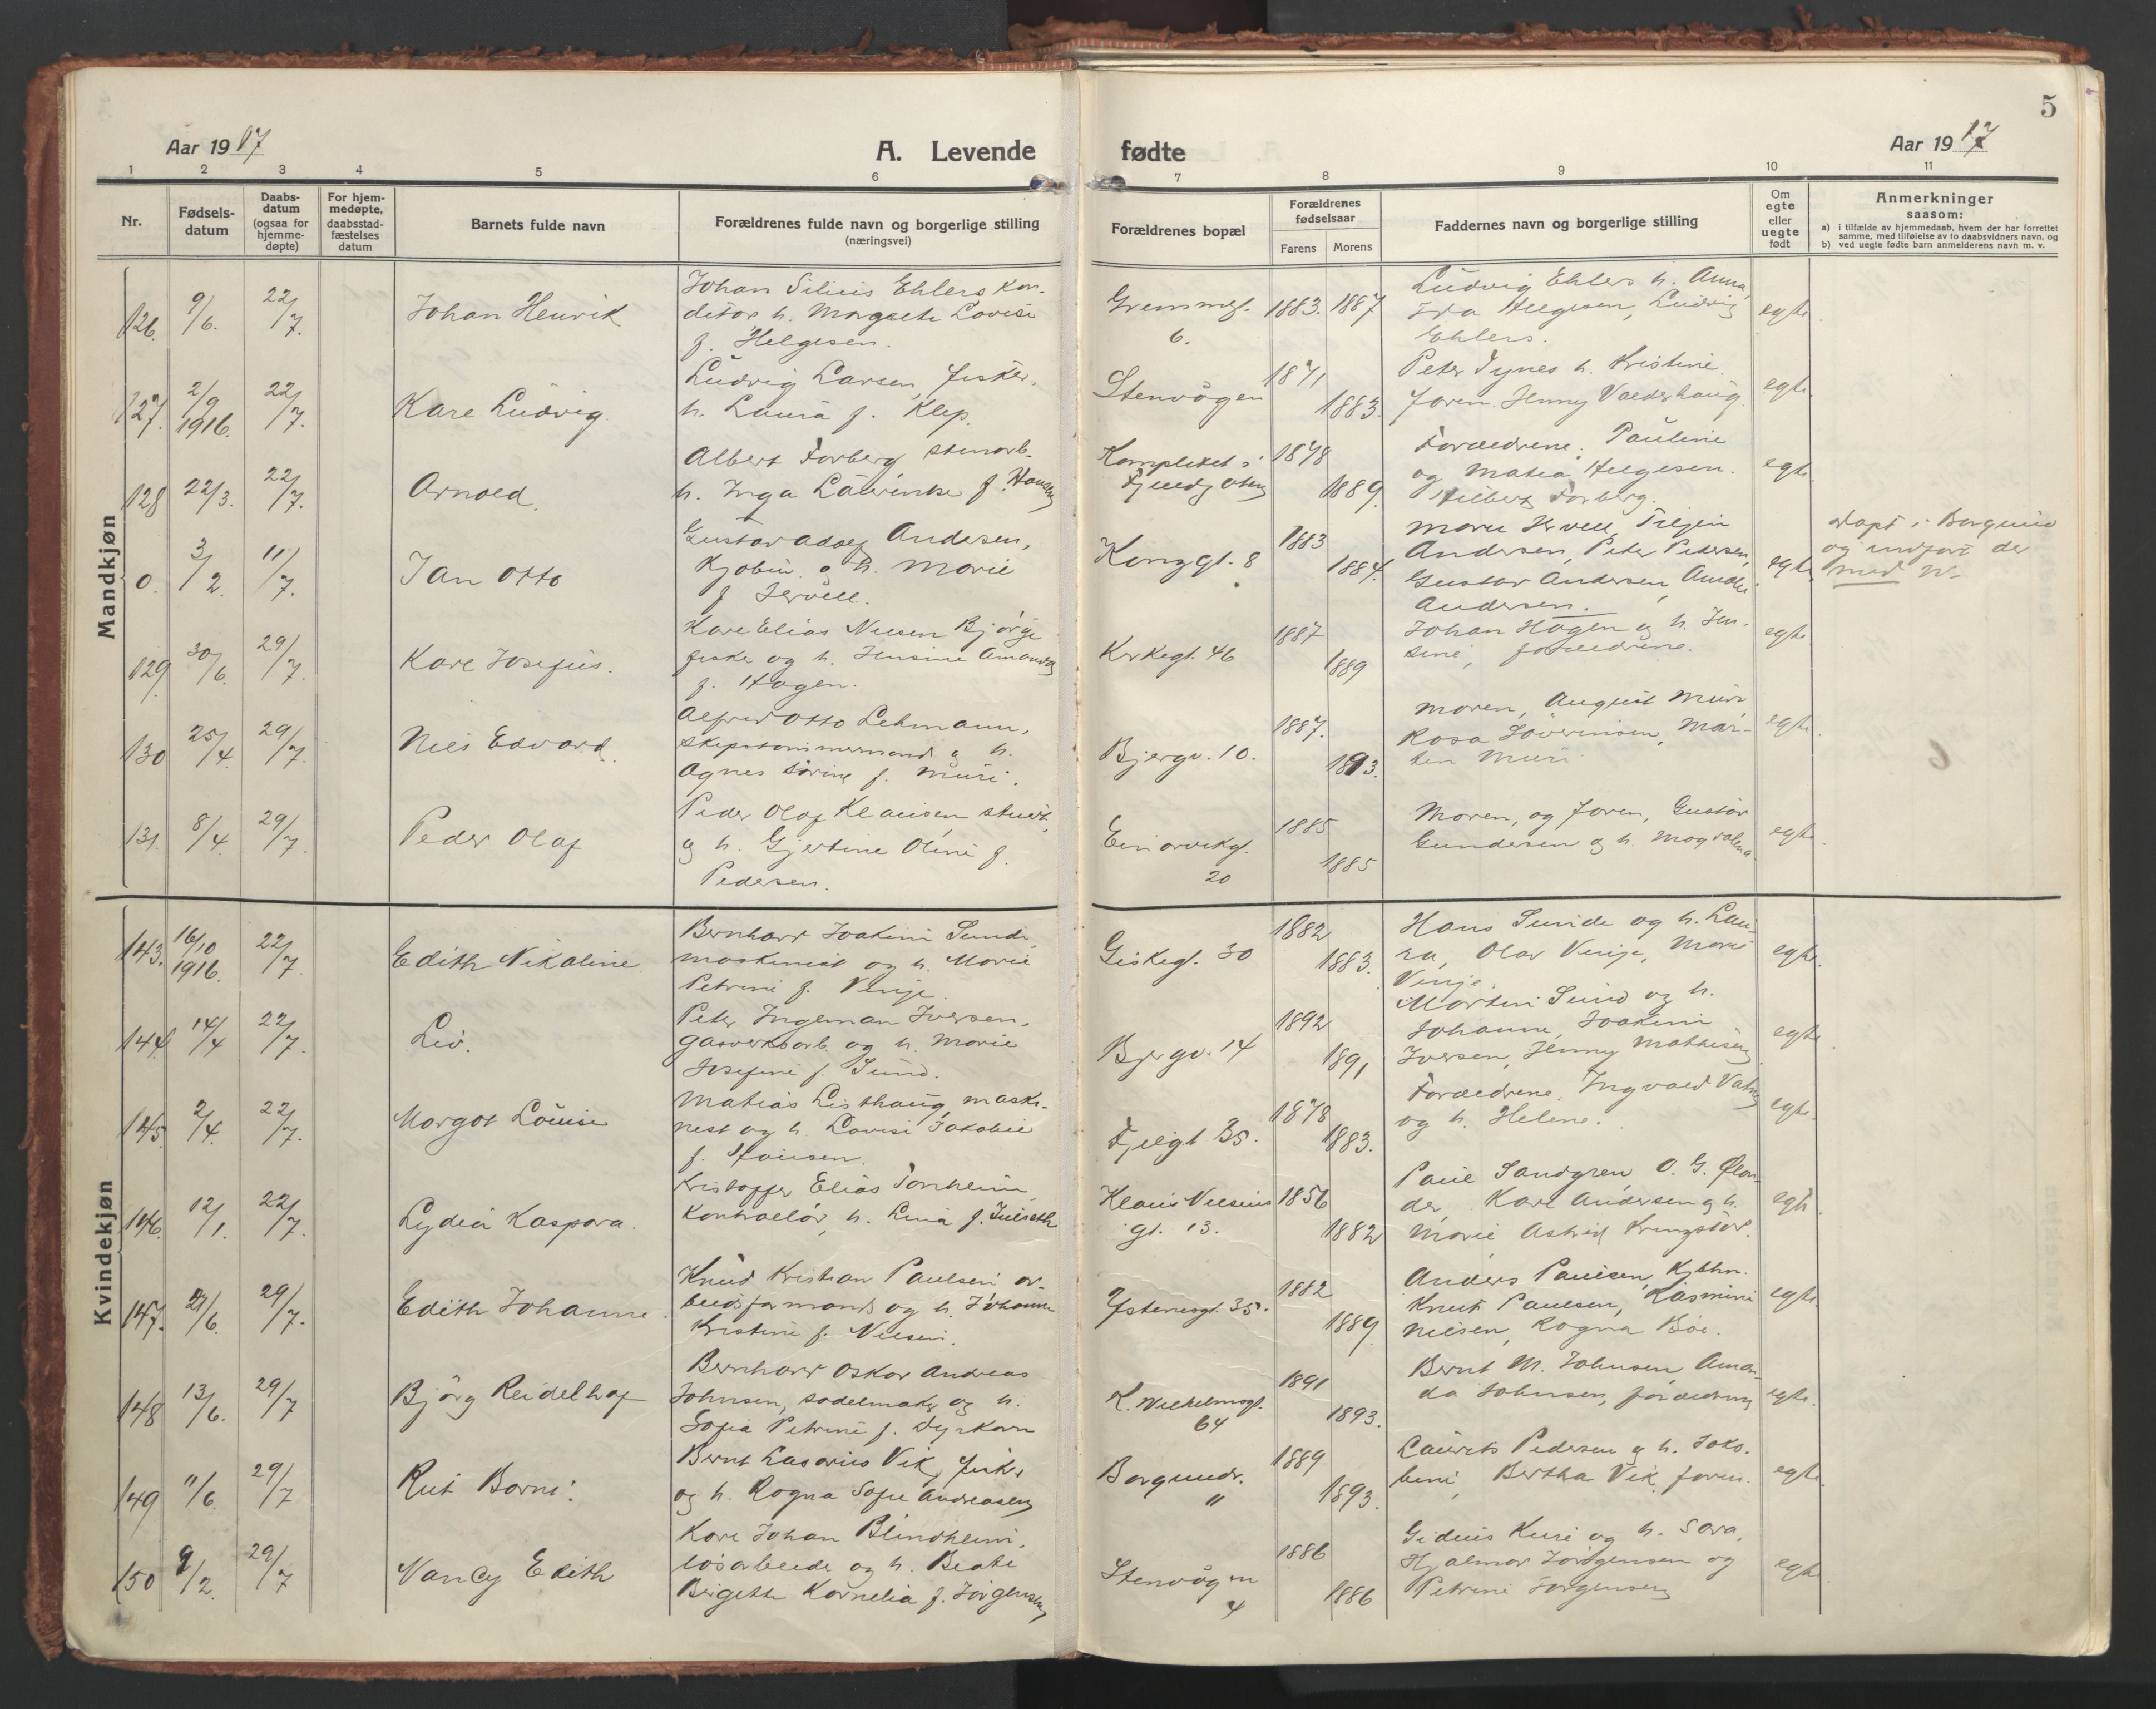 5
Aar 1917
A. Levende fødte
Aar 1917
1 2 3 4 5 6 7 8 9 10 11
Nr.
Fødsels-
datum
Daabs-
datum
(ogsaa for
hjemme-
døpte)
For hjem-
medøpte,
daabsstad-
fæstelses
datum
Barnets fulde navn
Forældrenes fulde navn og borgerlige stilling
(næringsvei)
Forældrenes bopæl
Forældrenes
fødselsaar
Farens Morens
Faddernes navn og borgerlige stilling
Om
egte
eller
uegte
født
Anmerkninger
saasom:
a) i tilfælde av hjemmedaab, hvem der har forrettet
samme, med tilføielse av to daabsvidners navn, og
b) ved uegte fødte barn anmelderens navn m. v.
Mandkjøn
126. 9/6. 22/7. Johan Henrik
Johan Silius Ehlers kon-
ditor h. Margrete Lovise
f. Helgesen.
6. 1883. 1887
Ludvig Ehlers h. Anna,
Ida Helgesen, Ludvig
Ehlers.
egte.
127. 2/9 1916. 22/7. Kare Ludvig.
Ludvig Larsen, fisker,
h. Laura f. Klep.
Stenvågen 1871 1883.
Peter Tynes h. Kristine.
Faren. Jenny Valderhaug.
egte.
128 22/3. 22/7. Arnold.
Albert Forberg, stenarb.
h. Inga Laurenke f. Hansen
1878 1889.
Forældrene, Pauline
og Matea Helgesen.
Forberg.
egte.
0. 3/2. 11/7. Jan Otto
Gustav Adolf Andersen,
Kjøbm. og h. Marie
f. Jervell.
Konggt. 8 1883 1884.
Marie Jervell,
Andersen, Peter Pedersen,
Gustav Andersen,
Andersen.
egte.
døpt i Borgund
og indført der
med N-
129. 30/6. 29/7. Kare Josefus.
Kare Elias Nilsen Bjørge
fisker og h. Jensine Amanda
f. Hagen.
Kirkegt. 46 1887 1889
Johan Hagen og h. Jen-
sine, forældrene.
egte.
130 25/4. 29/7. Nils Edvard.
Alfred Otto Lehmann,
skipstømmermand og h.
Agnes Sørine f. Muri.
Bjergv. 10. 1887. 1893.
Moren, August Muri
Rosa Søverinsen, Mar-
ten Muri
egte.
131. 8/4. 29/7. Peder Olaf
Peder Olaf Klausen stuert,
og h. Gjertine Oline f.
Pedersen.
Einarvikgt.
20 1885 1885
Moren, og faren, Gustav
Gundersen og h. Magdalena.
egte.
Kvindekjøn
143. 16/10 1916. 22/7. Edith Nikoline
Bernhard Joakim Sunde,
maskinist og h. Marie
Petrine f. Vinje.
Giskegt. 30 1882 1883.
Hans Sunde og h. Lau-
ra, Olav Vinje, Marie
Vinje.
egte.
144. 14/4 22/7. Liv.
Peter Ingeman Iversen,
gasverksarb. og h. Marie
Josefine f. Sund.
Bjergv. 14 1892 1891
Martin Sund og h.
Johanne, Joakim
Iversen, Jenny Mathisen
egte.
145 2/4. 22/7. Margot Louise
Matias Listhaug, maski-
nist og h. Lovise Jakobie
f. Hansen.
Fjeldgt 35. 1878 1883.
Forældrene, Ingvald Vatne
og h. Helene.
egte.
146. 12/1. 22/7. Lydia Kaspara.
Kristoffer Elias Tonheim,
Kontrollør, h. Lina f. Julseth
Klaus Nilsens
gt. 13. 1856 1882
Paul Sandgren, O. G. Ølan-
der, Kare Andersen og h.
Marie, Astrid Kringstad.
egte.
147. 21/6. 29/7. Edith Johanne.
Knud Kristian Paulsen ar-
beidsformand og h. Johanne
Kristine f. Nilsen.
Ystenesgt. 35. 1882 1889
Anders Paulsen, Kjøbm.
Knut Paulsen, Rasmine
Nilsen, Ragna Bøe.
egte.
148 13/6. 29/7 Bjørg Reidelhaf
Bernhard Oskar Andreas
Johnsen, sadelmaker og h.
Sofia Petrine f. Dyrkorn
K. Wilhelmsgt.
64 1891 1893.
Bernt M. Johnsen, Aman-
da Johnsen, forældrene
egte.
149 11/6. 29/7 Rut Borni.
Bernt Lasarius Vik, fisker
og h. Ragna Sofie Andreasen
Borgundv.
11 1889 1893.
Laurits Pedersen og h. Jako-
bine, Bertha Vik, faren.
egte.
150 9/2. 29/7 Nancy Edith
Kare Johan Blindheim,
løsarbeider og h. Beate
Birgitte Kornelia f. Jørgensen
Stenvågen
4 1886 1886
h. Sara,
Hjalmar Jørgensen og
Petrine Jørgensen
egte.